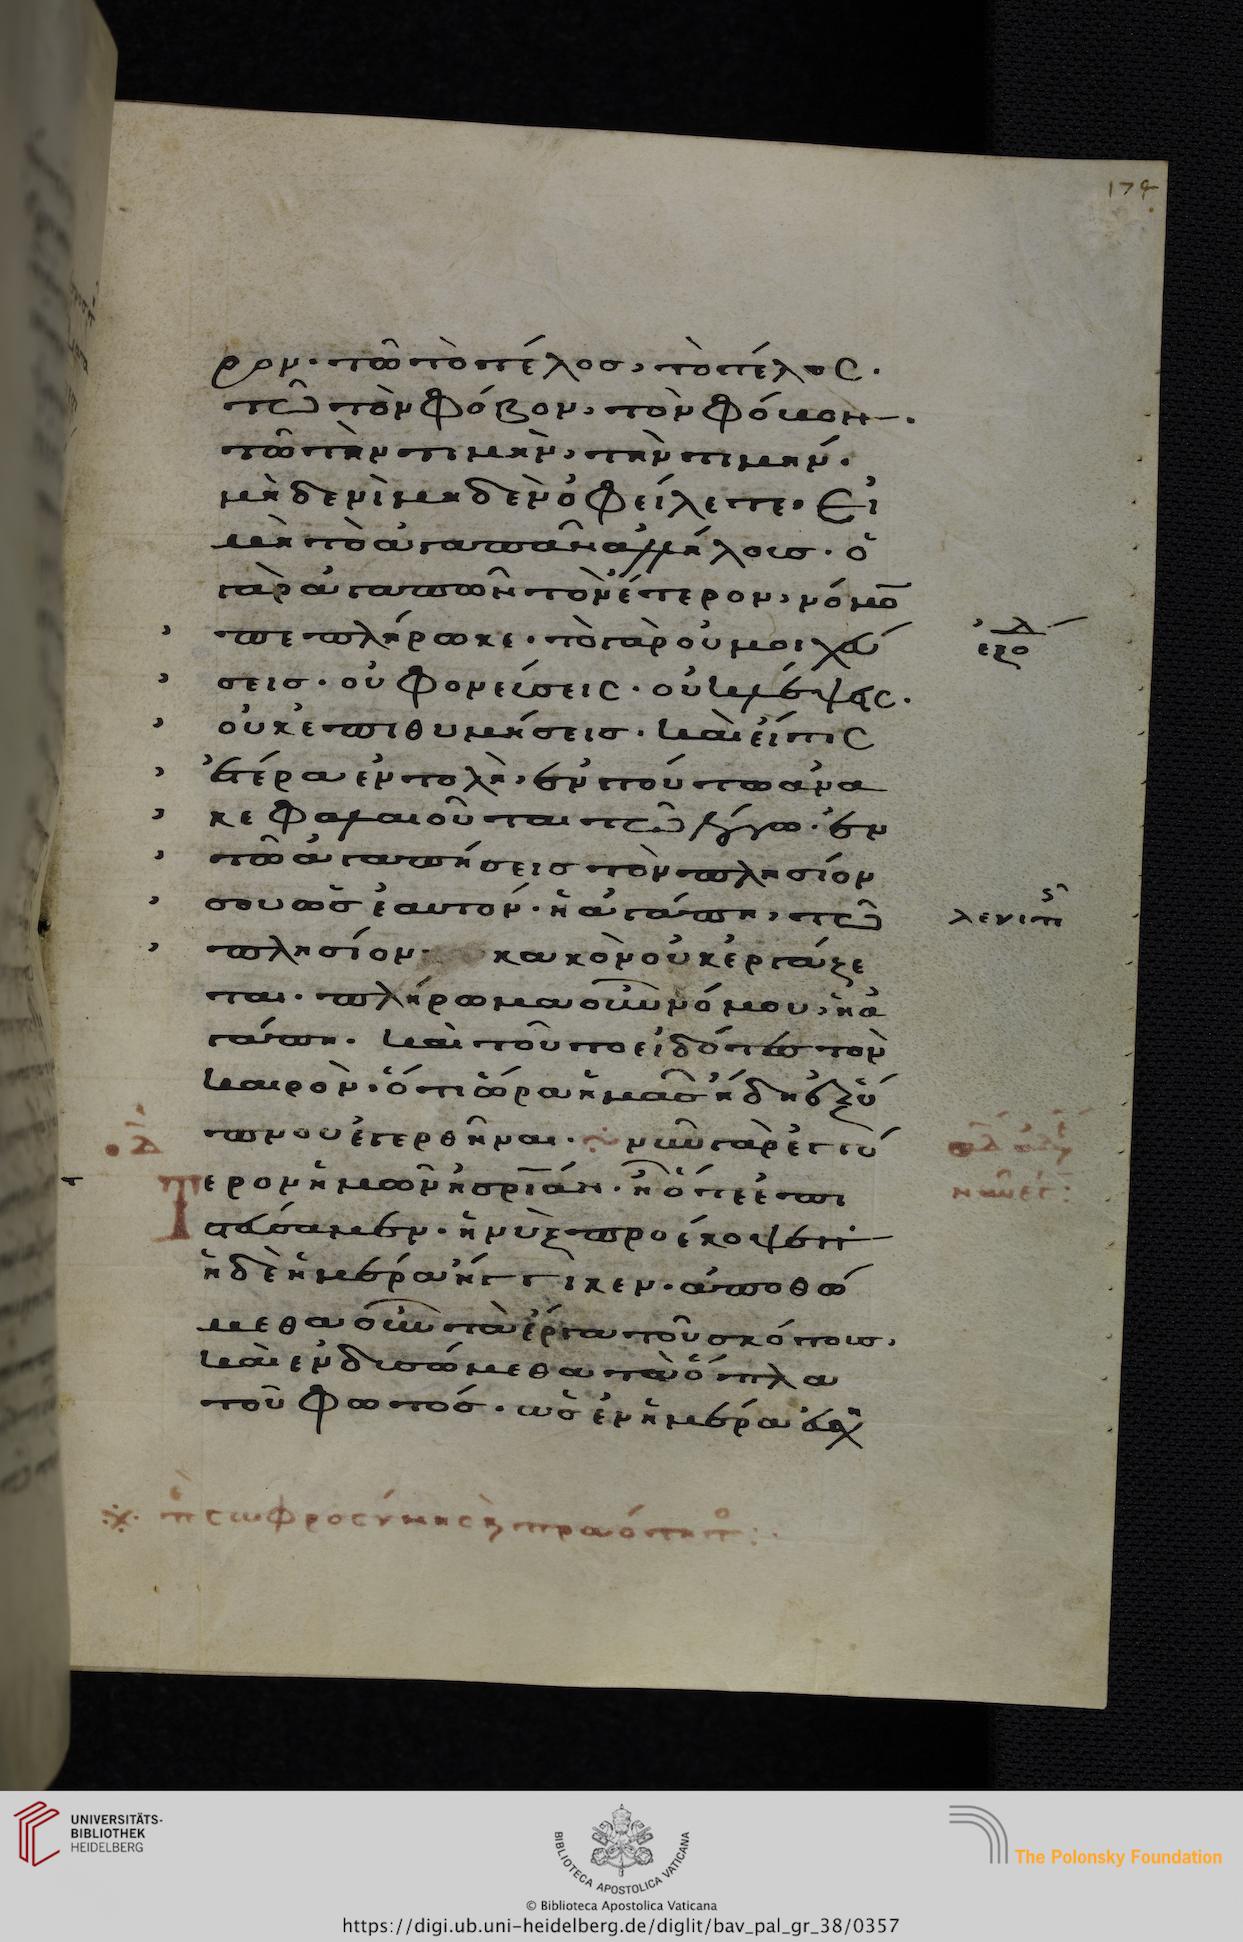 174
ρον· τῶ τὸ τέλος, τὸ τέλος·
τῶ τὸν φόβον, τὸν φόβον·
τῶ τὴν τιμὴν, τὴν τιμήν·
μηδενὶ μηδὲν ὀφείλετε· Εἰ
μὴ τὸ ἀγαπᾶν ἀλλήλους· ὁ
γὰρ ἀγαπῶν τὸν ἕτερον, νόμο
πεπλήρωκε· τὸ γὰρ οὐ μοιχεύ
σεις· οὐ φονεύσεις· οὐ κλέψεις·
οὐκ ἐπιθυμήσεις· καὶ εἴ τις
ἑτέρα ἐντολὴ, ἐν τούτω ἀνα
κεφαλαιοῦται τῶ λόγω· ἐν
τῶ ἀγαπήσεις τὸν πλησίον
σου ὡς ἑαυτόν· ἡ ἀγάπη, τῶ
λευιτ
πλησίον κακὸν οὐκ ἐργάζε
ται· πλήρωμα οὖν νόμου, ἡ ἀ
γάπη· καὶ τοῦτο εἰδότες τὸν
καιρὸν· ὅτι ὥρα ἡμᾶς ἤδη ἐξ ὕ
πνου ἐγερθῆναι· νῦν γὰρ ἐγγύ
τερον ἡμῶν ἡ σρία· ἢ ὅτε ἐπι
στεύσαμεν· ἡ νὺξ προέκοψεν
ἡ δὲ ἡμέρα ἤγγικεν· ἀποθώ
μεθα οὖν τὰ ἔργα τοῦ σκότους,
καὶ ἐνδυσώμεθα τὰ ὅπλα
τοῦ φωτός· ὡς ἐν ἡμέρα εὐσχη
UNIVERSITÄTS-
BIBLIOTHEK
HEIDELBERG
BIBLIOTECA APOSTOLICA VATICANA
The Polonsky Foundation
© Biblioteca Apostolica Vaticana
https://digi.ub.uni-heidelberg.de/diglit/bav_pal_gr_38/0357